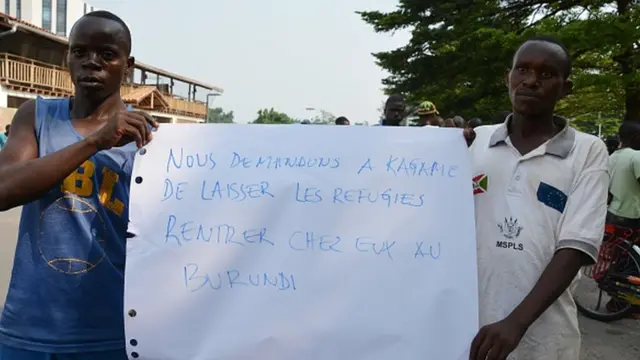 NOUS DEMANDONS A KAGAME
DE LAISSER LES REFUGIES
RENTRER CHEZ EUX AU
BURUNDI
BL
MSPLS